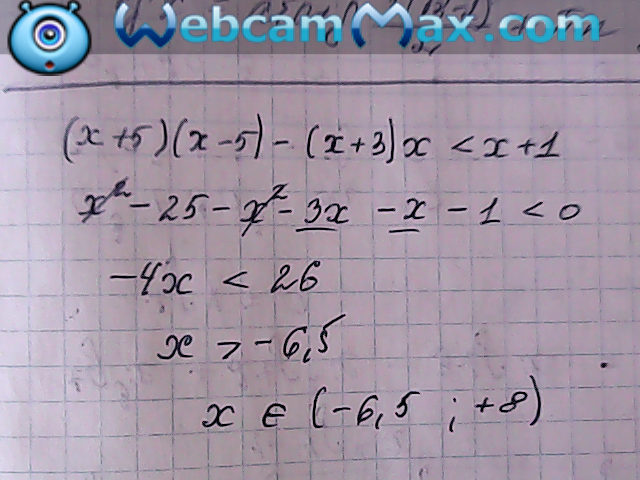 WebcamMax.com
(x+5)(x-5)-(x+3)x < x+1
x² - 25 - x² - 3x - x - 1 < 0
-4x < 26
x > -6,5
x ∈ (-6,5 ; +8)